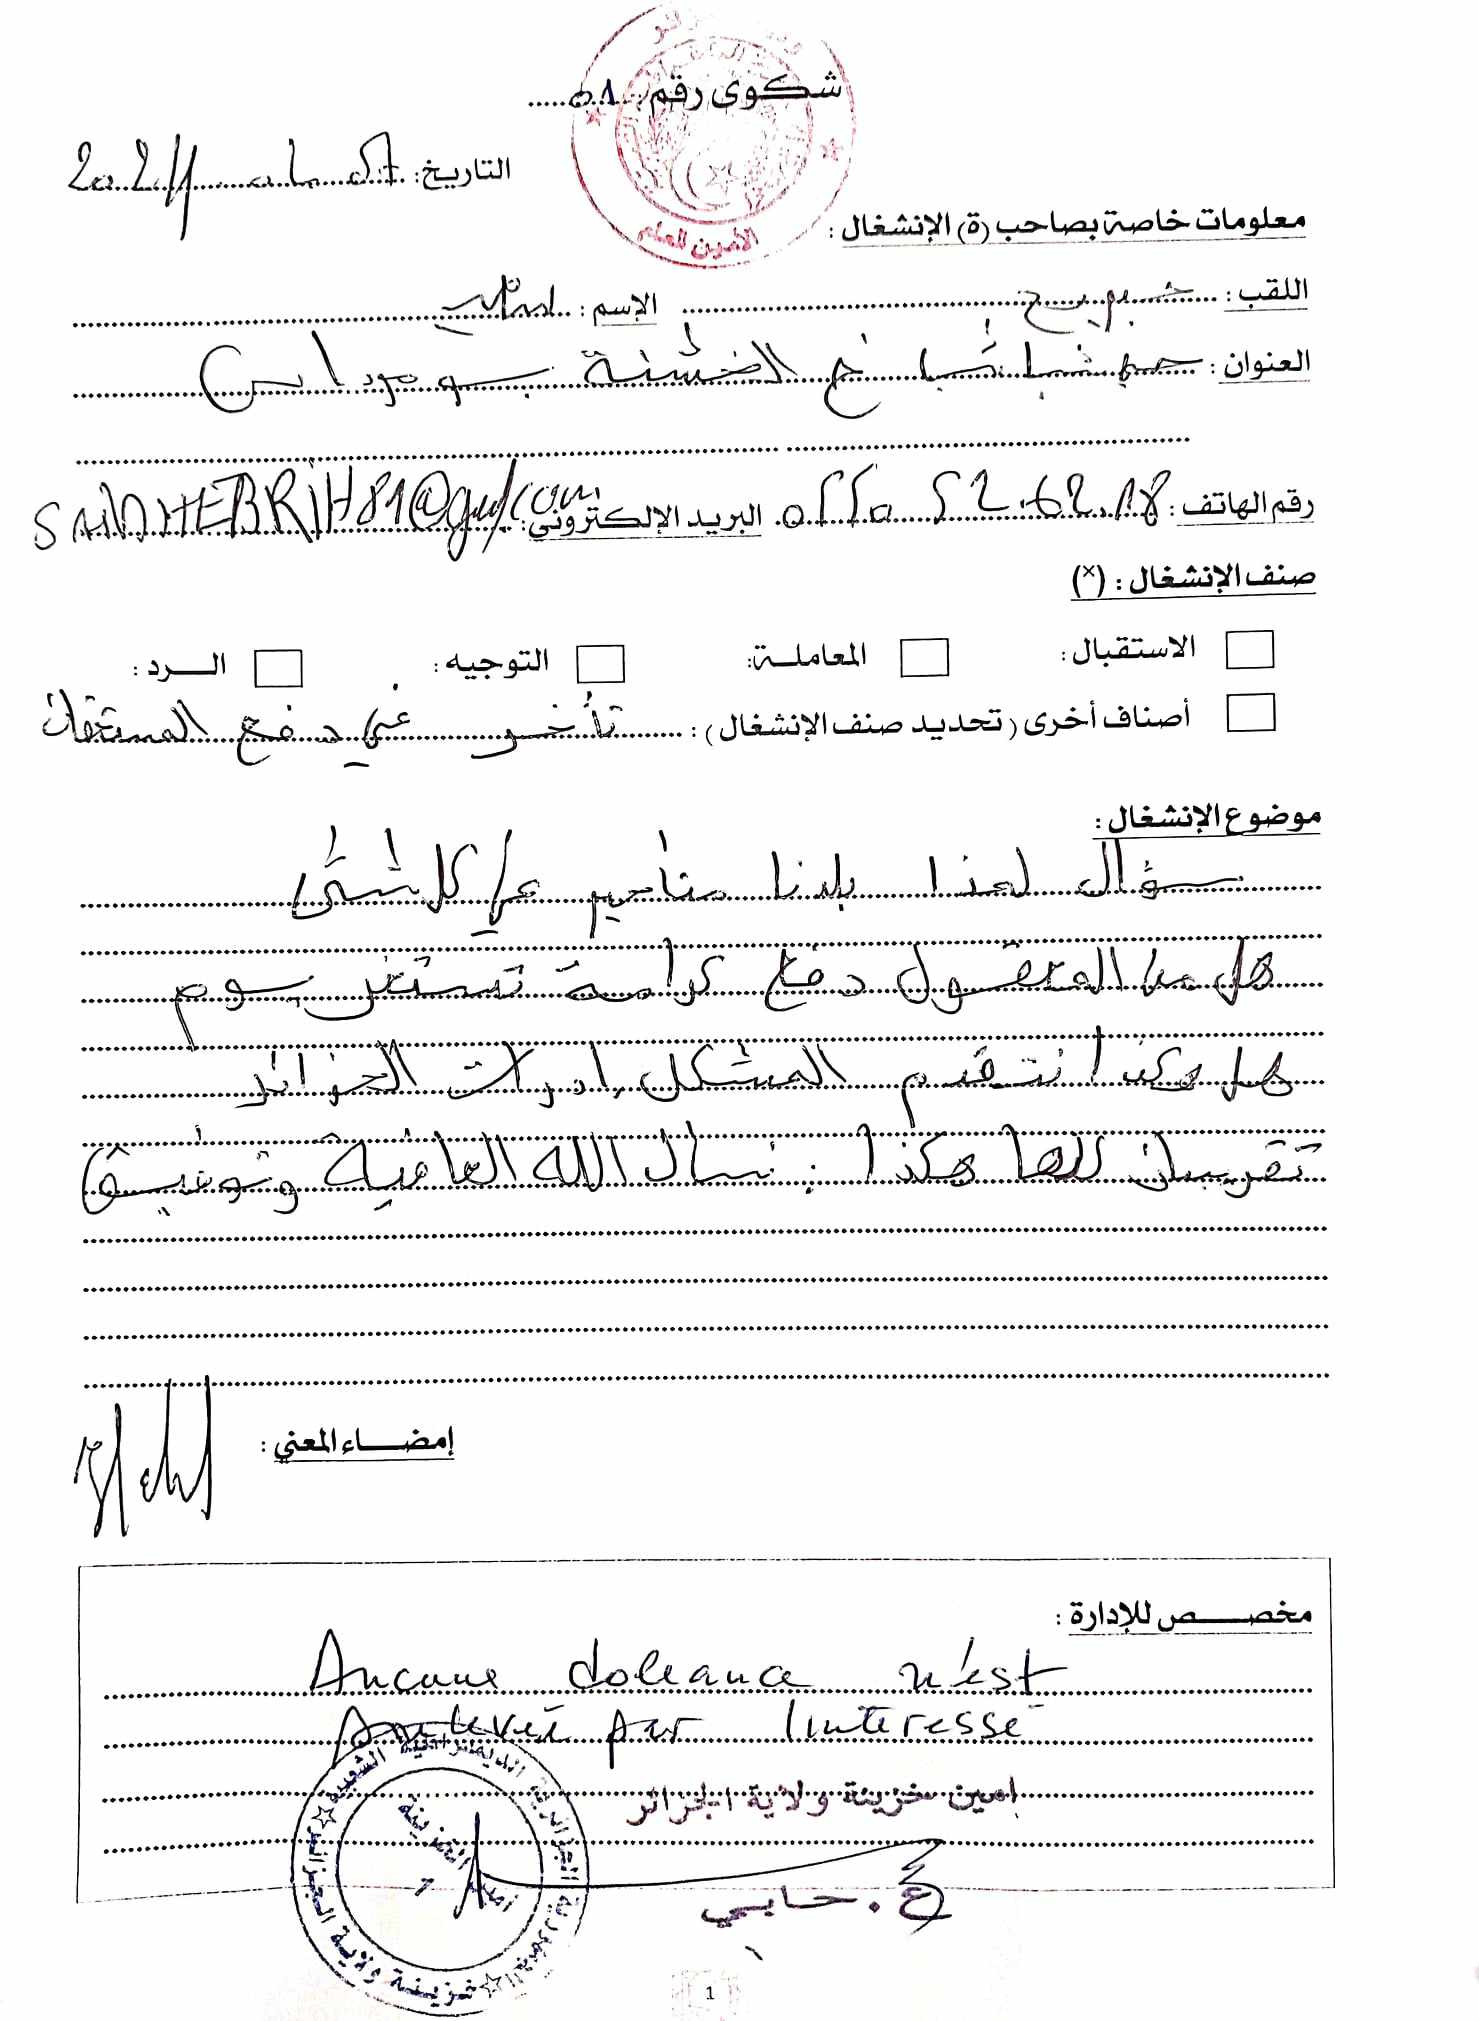 شكوى رقم: 01
الأمين العام
التاريخ: 2024
معلومات خاصة بصاحب (ة) الإنشغال:
اللقب: حبريح الإسم:
العنوان: الخشنة بومرداس
رقم الهاتف: 0550 52.62.18 البريد الإلكتروني: SAIDHEBRIH81@gmail.com
صنف الإنشغال: (×)
الاستقبال: المعاملة: التوجيه: الرد:
أصناف أخرى (تحديد صنف الإنشغال): تأخر في دفع المستحقات
موضوع الإنشغال:
سؤال لمذا بلدنا متأخر على كل شئ
هل من المعقول دفع كرامة تستغر يوم
هل هكذا نتقدم المشكل ادرات الجزائر
تقريبان كلها هكذا. نسال الله العافية وتوفيق
إمضاء المعني:
مخصص للإدارة:
Aucune doleance n'est
par l'interessé
امين خزينة ولاية الجزائر
ع. حابي
الجمهورية الجزائرية الديمقراطية الشعبية
خزينة ولاية الجزائر
أمين الخزينة
1
1